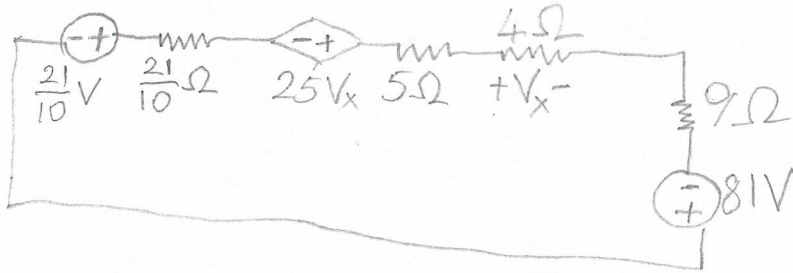 4Ω
- +
- +
21/10 V
21/10 Ω
25Vx
5Ω
+Vx-
9Ω
-
+
81V